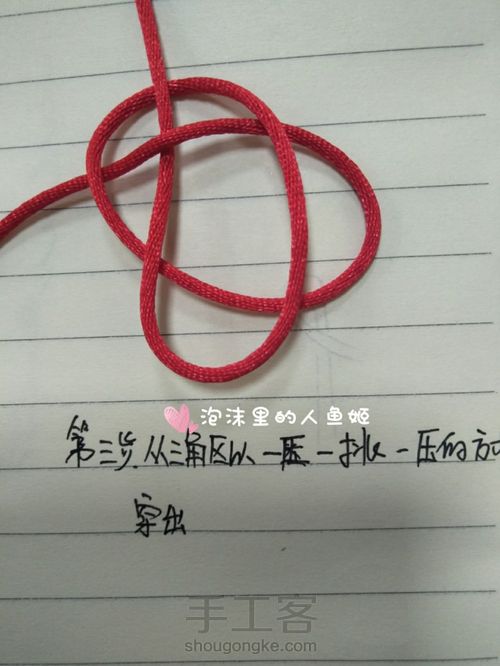 泡沫里的人鱼姬
第三步.从三角区以一压一挑一压的方
穿出
手工客
shougongke.com